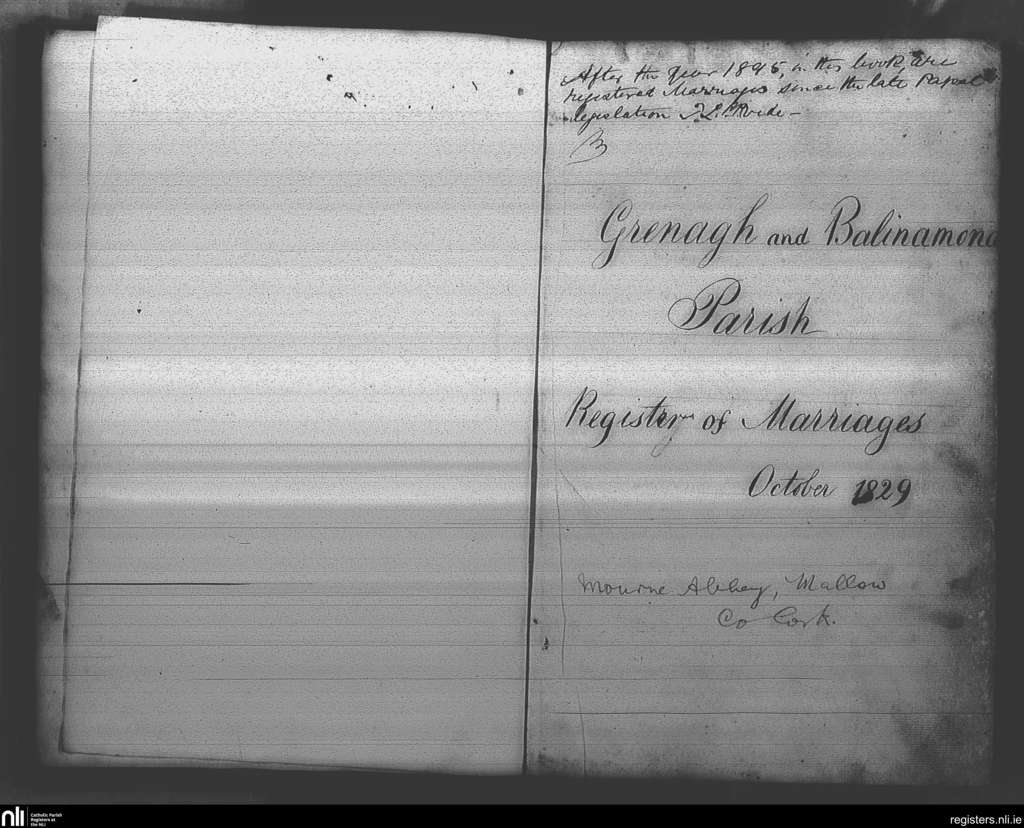 After the year 1895, in this book, are
registered Marriages since the late Papal
legislation
Grenagh and Balinamona
Parish
Register of Marriages
October 1829
Mourne Abbey, Mallow
Co Cork.
nli
Catholic Parish
Registers at
the NLI
registers.nli.ie